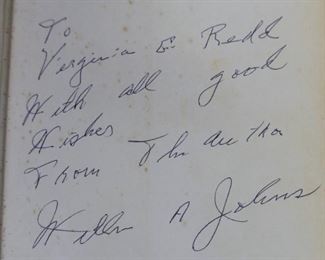 To
Virginia E Redd
With all good
Wishes
From The Author
Willia A Johns